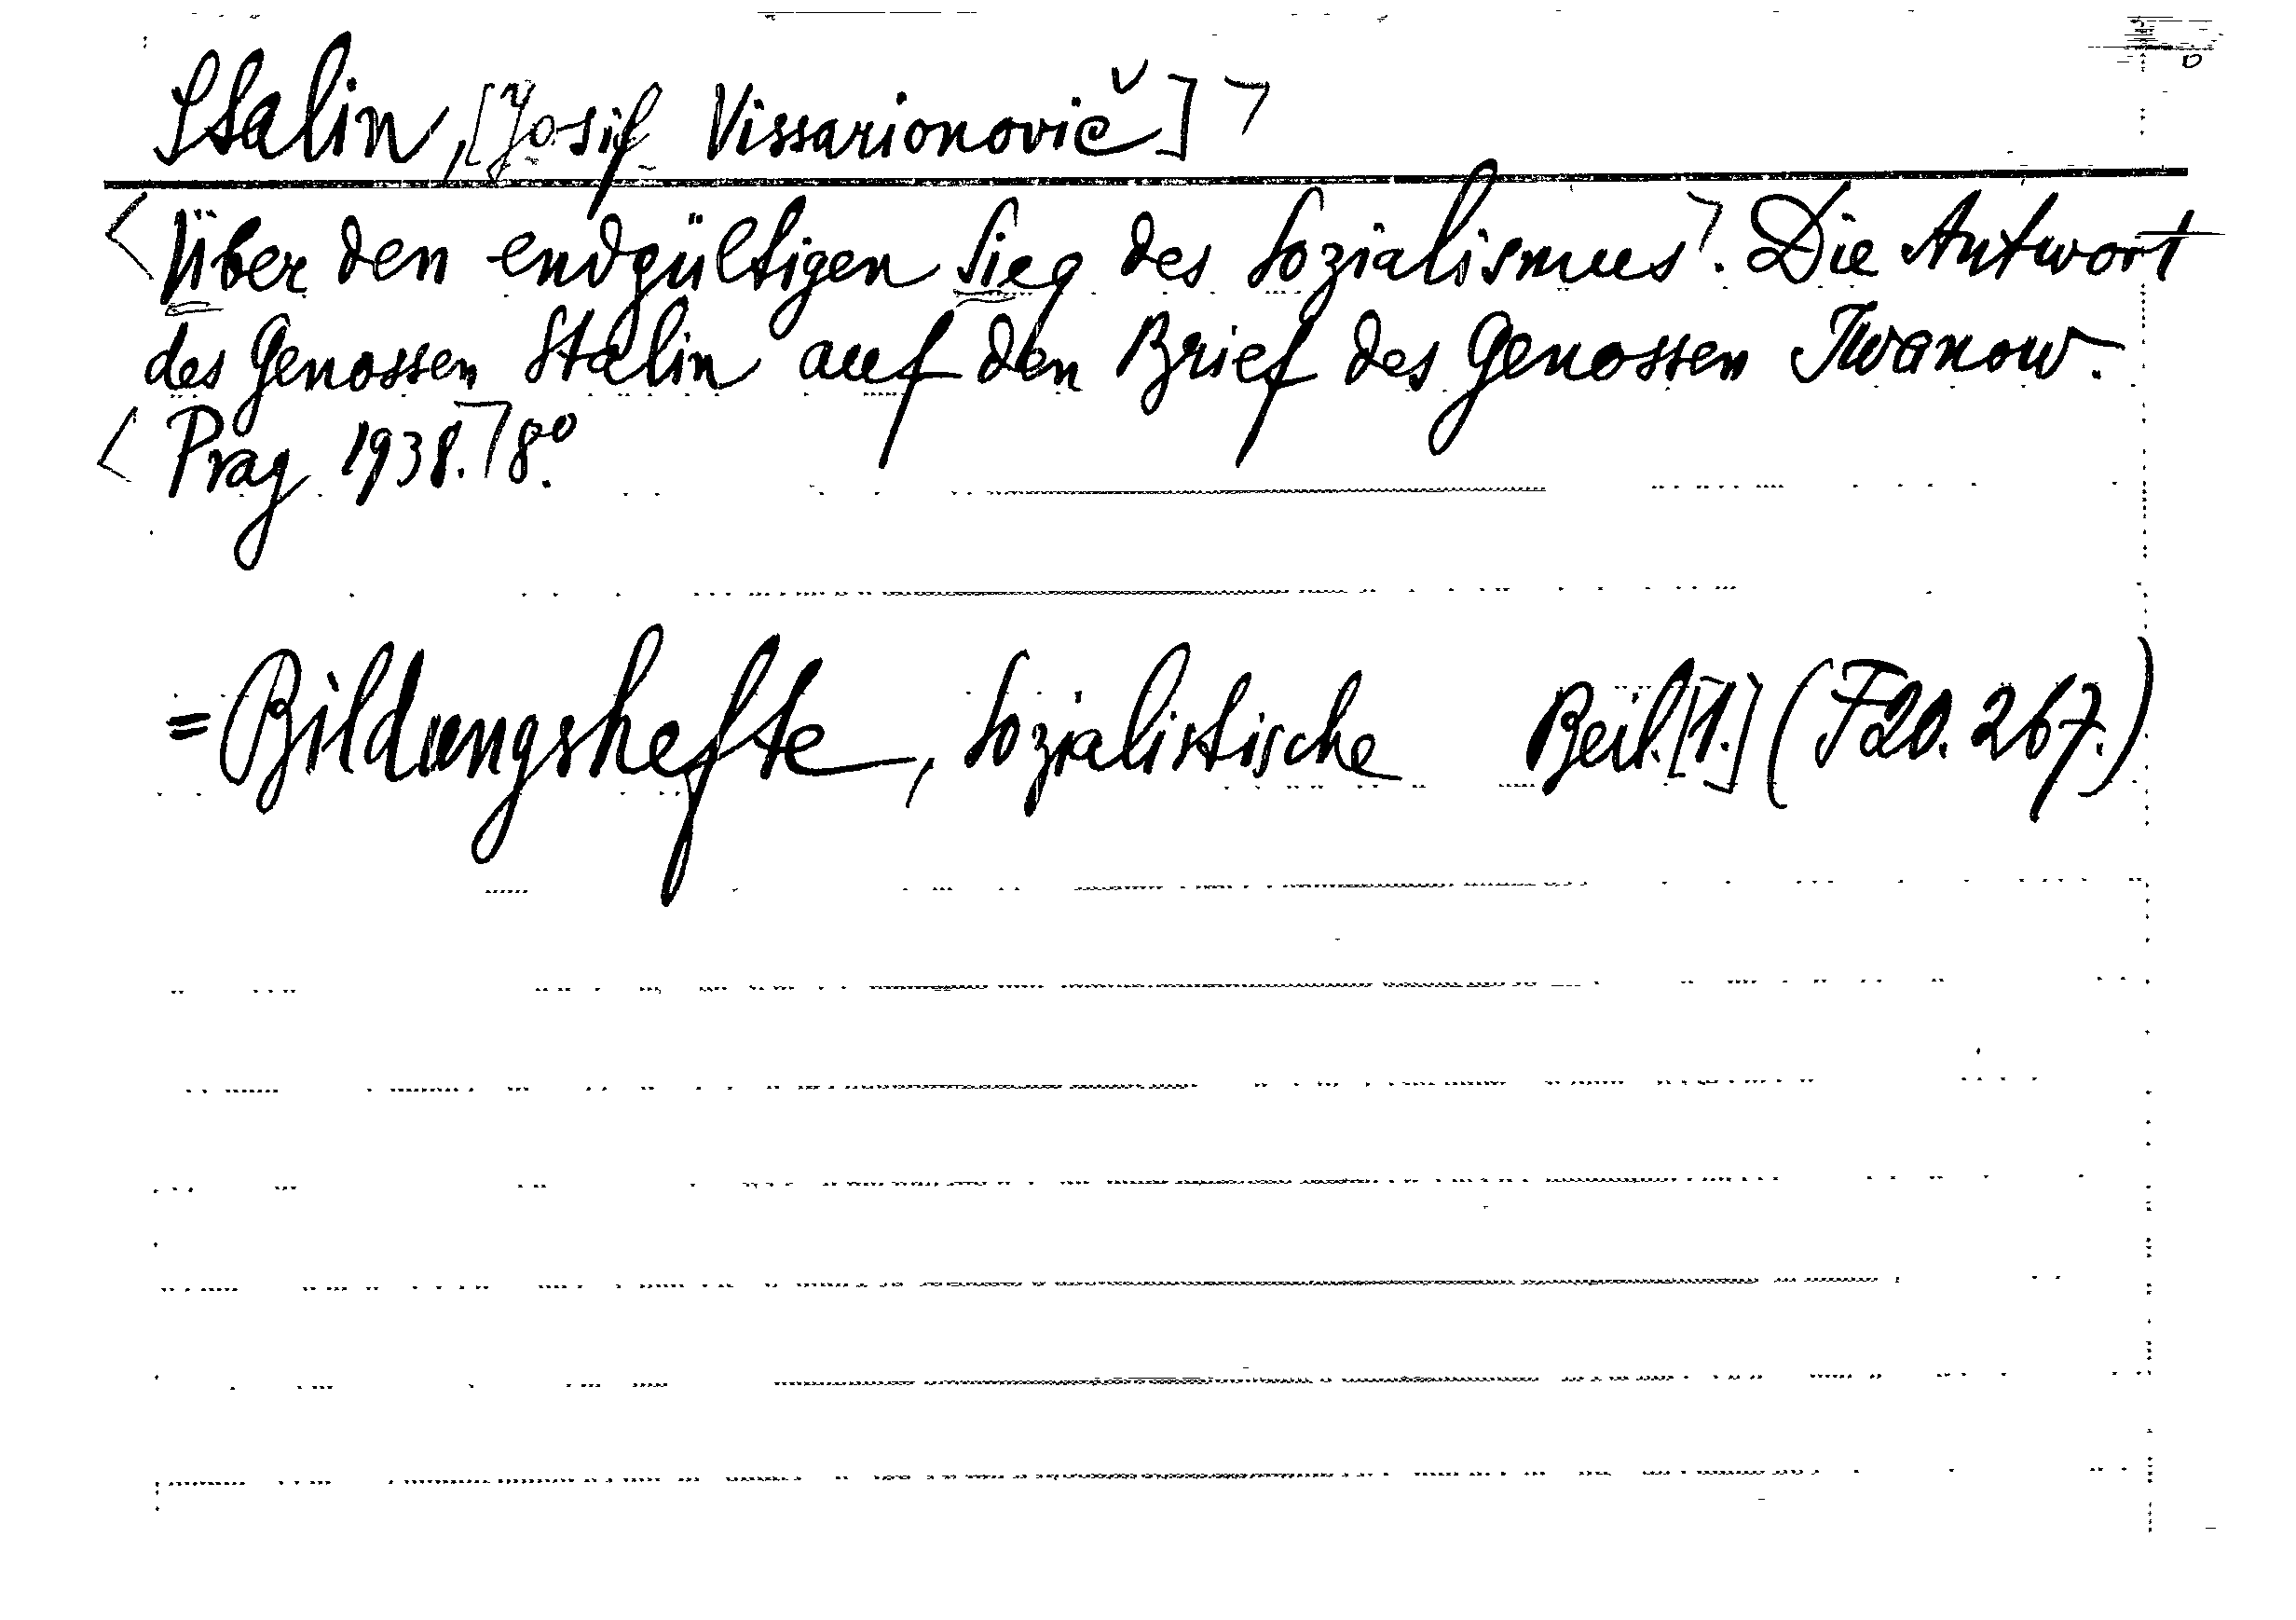 Stalin, [Josif Vissarionovič]
Über den endgültigen Sieg des Sozialismus. Die Antwort
des Genossen Stalin auf den Brief des Genossen Iwanow.
Prag 1938. 8°.
= Bildungshefte, Sozialistische Beil. [1.] (F20. 267.)